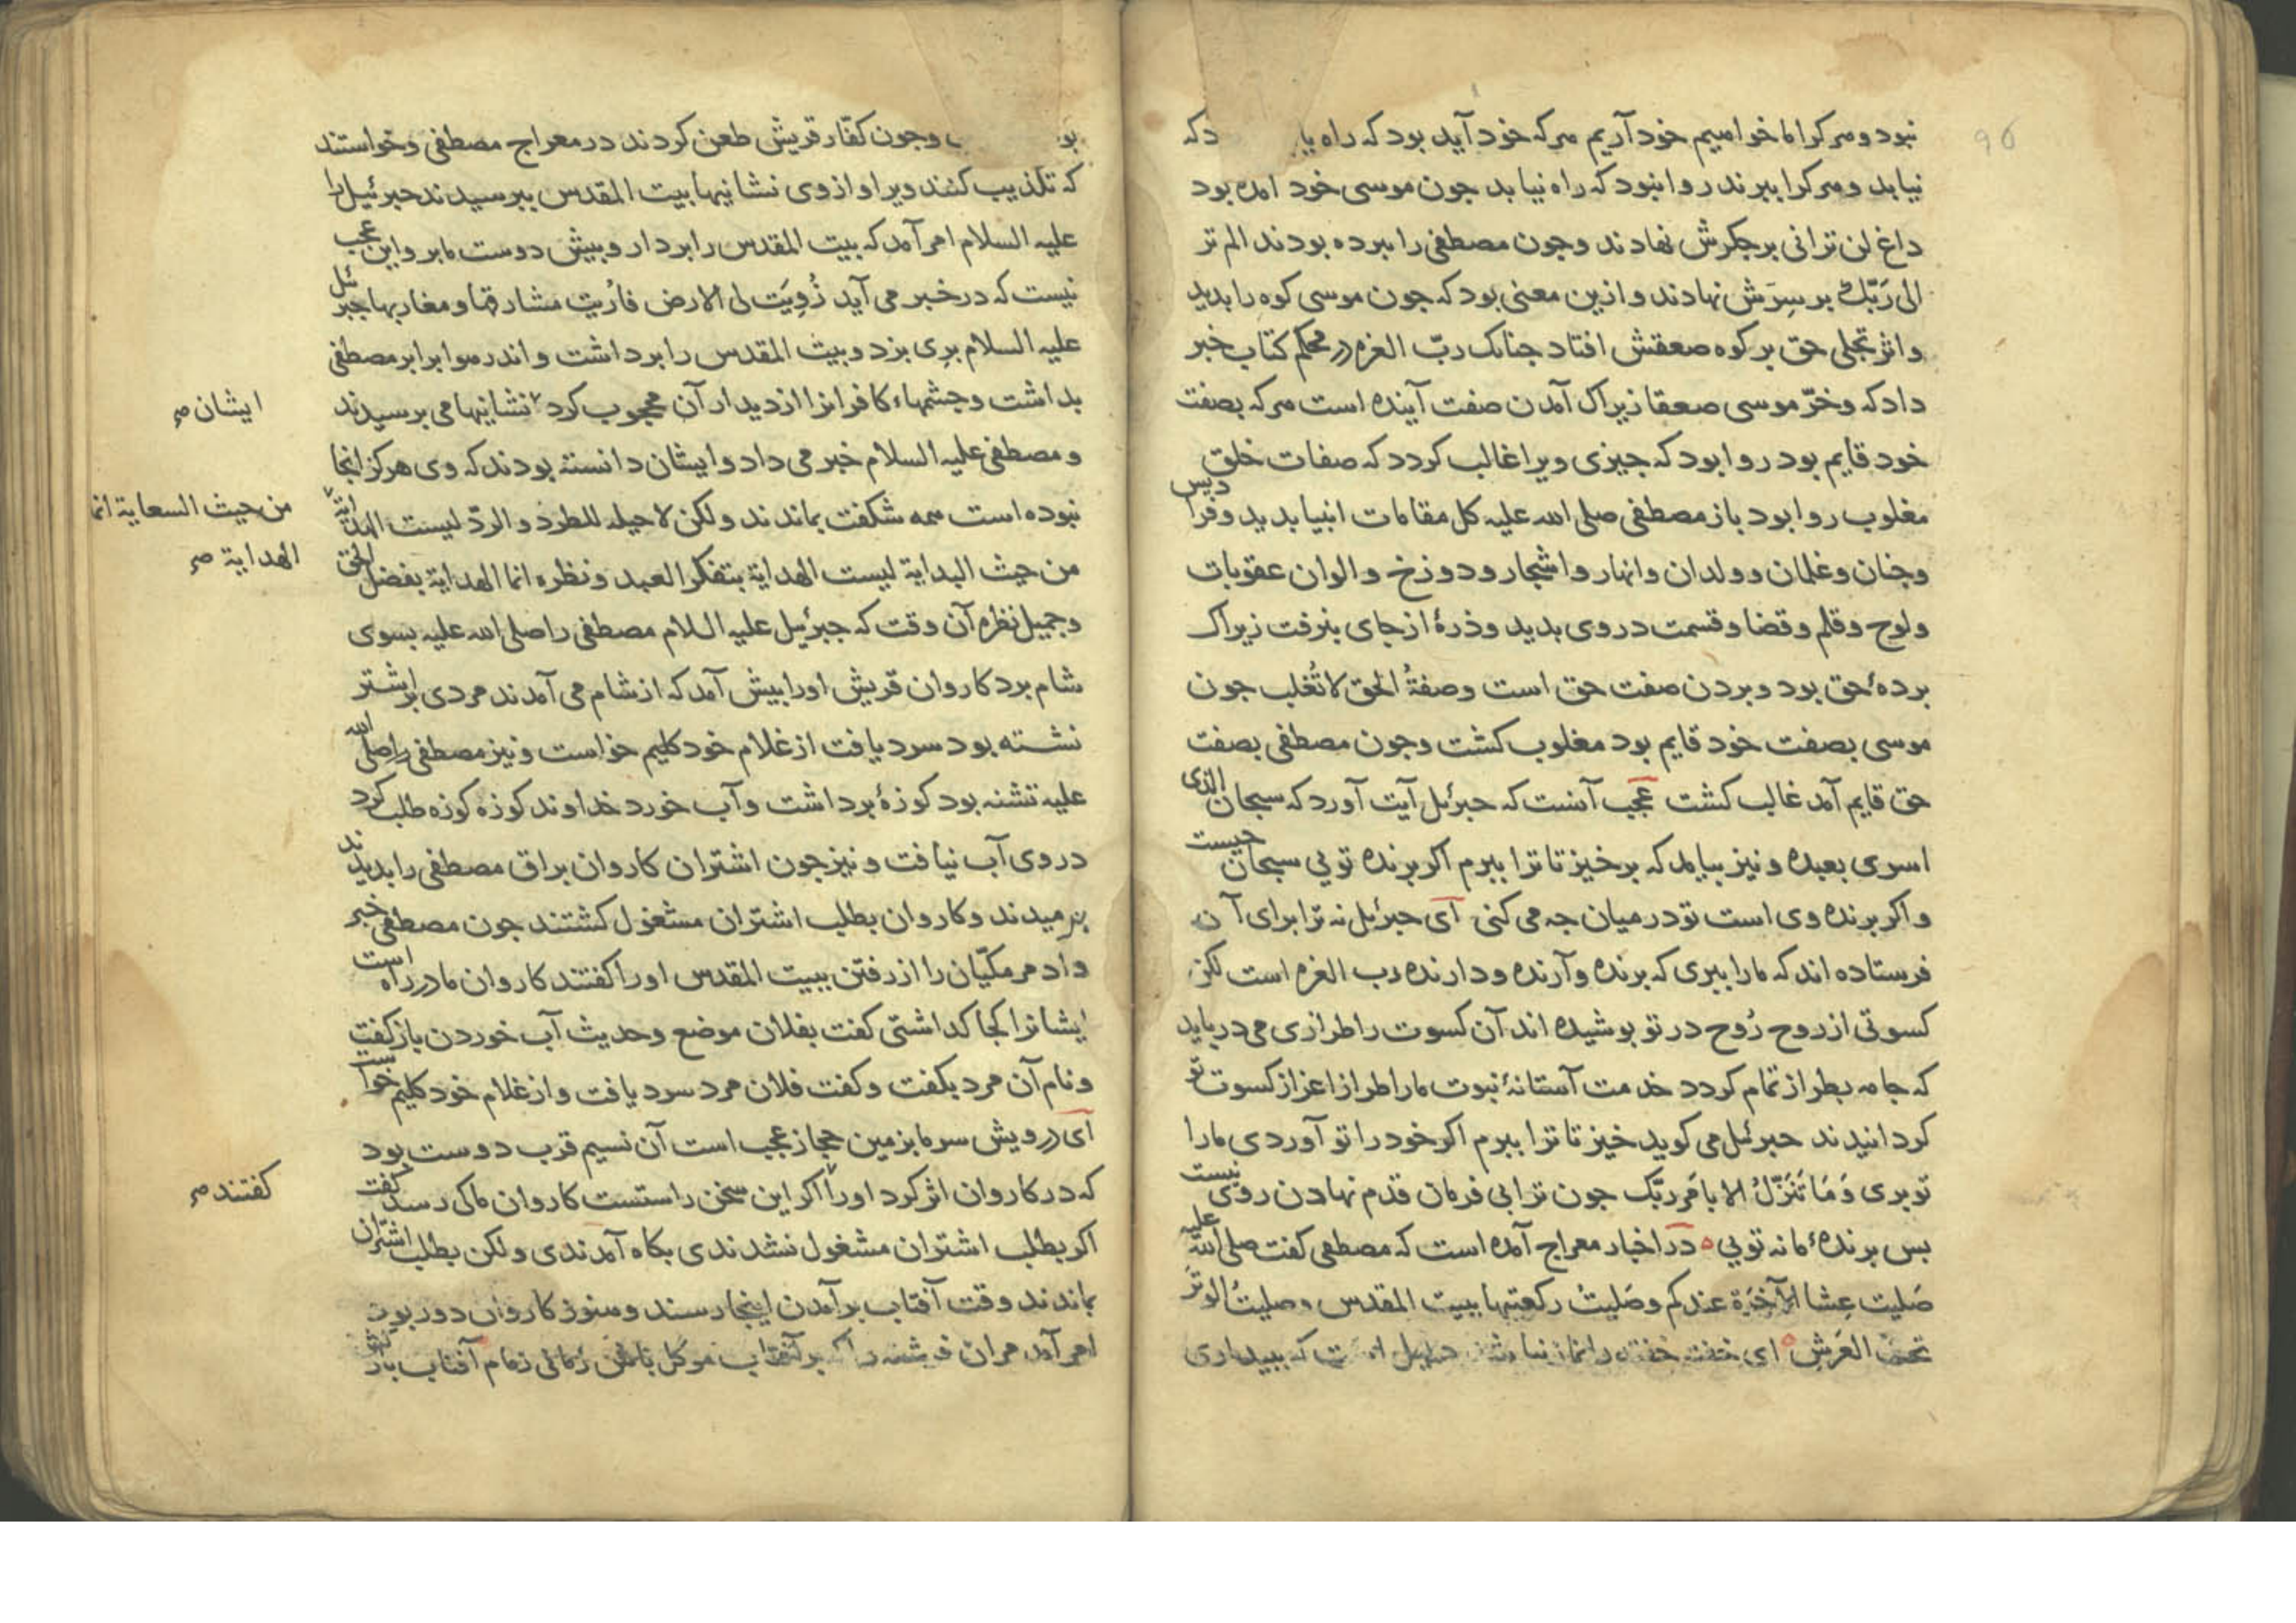 نبود و هرکرا ما خواهیم خود آریم هرکه خود آید بود که راه یا دکه
نیابد و هرکرا ببرند روا نبود که راه نیابد جون موسی خود امده بود
داغ لن ترانی بر جکرش نهادند وجون مصطفی را ببرده بودند الم تر
الی رَبّکَ بر سِرَش نهادند و ازین معنی بود که جون موسی کوه را بدید
و اثر تجلی حق بر کوه صعقش افتاد جنانک ربّ العزه در محکم کتاب خبر
داد که وخرّ موسی صعقا زیراک آمدن صفت آینده است هرکه بصفت
خود قایم بود روا بود که جیزی ویرا غالب کردد که صفات خلق
مغلوب روا بود باز مصطفی صلی الله علیه کل مقامات انبیا بدید وفرادیس
وجنان وغلمان و ولدان وانهار و اشجار و دوزخ و الوان عقوبات
ولوح وقلم وقضا وقسمت در وی بدید وذرهٔ از جای بنرفت زیراک
بردهٔ حق بود و بردن صفت حق است وصفةُ الحق لا تُغلب جون
موسی بصفت خود قایم بود مغلوب کشت وجون مصطفی بصفت
حق قایم آمد غالب کشت عجب آنست که جبرئیل آیت آورد که سبحان الذی
اسری بعبده و نیز بیامد که برخیز تا ترا ببرم اکر برنده تویی سبحان جیست
و اکر برنده وی است تو در میان جه می کنی آی جبرئیل نه ترا برای آن
فرستاده اند که مارا ببری که برنده و آرنده ودارنده رب العزه است لکن
کسوتی از روح رُوح در تو بوشیده اند آن کسوت را طرازی می دریابد
که جامه بطراز تمام کردد خدمت آستانهٔ نبوت مارا طراز اعزاز کسوت تو
کردانیدند جبرئیل می کوید خیز تا ترا ببرم اکر خود را تو آوردی مارا
تو بری وَمَا نَتَنَزَّلُ الا بامَرِ ربّک جون ترا بی فرمان قدم نهادن روی نیست
بس برندهٔ ما نه تویی ه در اخبار معراج آمده است که مصطفی کفت صلی الله علیه
صَلیت عِشا الآخرة عندکم وصَلیتُ رکعتیها ببیت المقدس وصلیتُ الوترَ
تحت العَرشِ ه ای خفته را نماز نباشد که ببیداری
بو وجون کفّار قریش طعن کردند در معراج مصطفی وخواستند
که تکذیب کنند ویرا و از وی نشانیها بیت المقدس ببرسیدند جبرئیل را
علیه السلام امر آمد که بیت المقدس را بردار و بیش دوست ما بر واین عجب
نیست که در خبر می آید زُوِیَت لی الارض فارُیت مشارقها و مغاربها جبرئیل
علیه السلام بری بزد وبیت المقدس را برداشت و اندر هوا برابر مصطفی
بداشت وجشمهاء کافرانرا از دیدار آن محجوب کرد نشانیها می برسیدند
ایشان صح
و مصطفی علیه السلام خبر می داد وایشان دانسته بودند که وی هرکز انجا
نبوده است همه شکفت بماندند ولکن لا حیله للطرد و الردّ لیست الهدایة
من حیث السعایة انما
من حیث البدایة لیست الهدایة بتفکر العبد ونظره انما الهدایة بفضل الحق
الهدایة صح
وجمیل نظره آن وقت که جبرئیل علیه السلام مصطفی را صلی الله علیه بسوی
شام برد کاروان قریش اورا بیش آمد که از شام می آمدند مردی بر اشتر
نشسته بود سرد یافت از غلام خود کلیم خواست ونیز مصطفی را صلی الله
علیه تشنه بود کوزهٔ برداشت وآب خورد خداوند کوزه کوزه طلب کرد
در وی آب نیافت ونیز جون اشتران کاروان براق مصطفی را بدیدند
برمیدند وکاروان بطلب اشتران مشغول کشتند جون مصطفی خبر
داد مر مکیّان را از رفتن ببیت المقدس اورا کفتند کاروان ما در راه است
ایشانرا کجا کداشتی کفت بفلان موضع وحدیث آب خوردن باز کفت
ونام آن مرد بکفت وکفت فلان مرد سرد یافت واز غلام خود کلیم خواست
آی درویش سرما بزمین حجاز عجب است آن نسیم قرب دوست بود
که در کاروان اثر کرد اورا اکر این سخن راستست کاروان ما کی رسد کفت
کفتند صح
اکر بطلب اشتران مشغول نشدندی بکاه آمدندی ولکن بطلب اشتران
بماندند وقت آفتاب برآمدن اینجا رسند وهنوز کاروان دور بود
امر آمد مران فرشته را که بر آفتاب موکل باشد زمانی زمام آفتاب باز